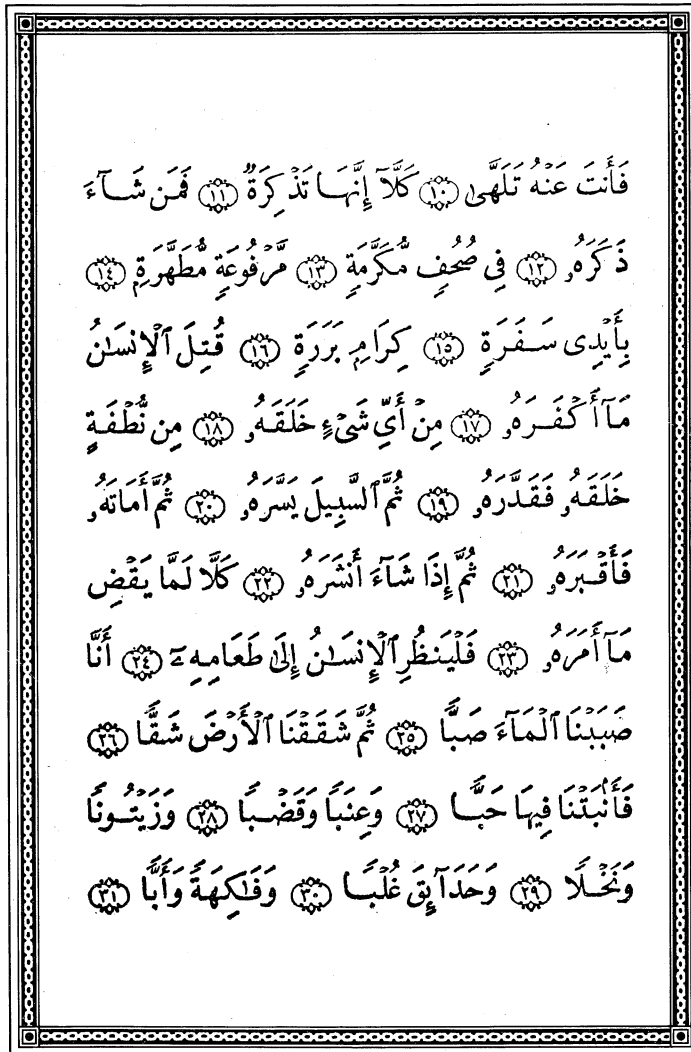 فَأَنتَ عَنْهُ تَلَهَّىٰ ﴿١٠﴾ كَلَّآ إِنَّهَا تَذْكِرَةٌ ﴿١١﴾ فَمَن شَآءَ
ذَكَرَهُۥ ﴿١٢﴾ فِى صُحُفٍ مُّكَرَّمَةٍ ﴿١٣﴾ مَّرْفُوعَةٍ مُّطَهَّرَةٍۭ ﴿١٤﴾
بِأَيْدِى سَفَرَةٍ ﴿١٥﴾ كِرَامٍۭ بَرَرَةٍ ﴿١٦﴾ قُتِلَ ٱلْإِنسَـٰنُ
مَآ أَكْفَرَهُۥ ﴿١٧﴾ مِنْ أَىِّ شَىْءٍ خَلَقَهُۥ ﴿١٨﴾ مِن نُّطْفَةٍ
خَلَقَهُۥ فَقَدَّرَهُۥ ﴿١٩﴾ ثُمَّ ٱلسَّبِيلَ يَسَّرَهُۥ ﴿٢٠﴾ ثُمَّ أَمَاتَهُۥ
فَأَقْبَرَهُۥ ﴿٢١﴾ ثُمَّ إِذَا شَآءَ أَنشَرَهُۥ ﴿٢٢﴾ كَلَّا لَمَّا يَقْضِ
مَآ أَمَرَهُۥ ﴿٢٣﴾ فَلْيَنظُرِ ٱلْإِنسَـٰنُ إِلَىٰ طَعَامِهِۦٓ ﴿٢٤﴾ أَنَّا
صَبَبْنَا ٱلْمَآءَ صَبًّا ﴿٢٥﴾ ثُمَّ شَقَقْنَا ٱلْأَرْضَ شَقًّا ﴿٢٦﴾
فَأَنۢبَتْنَا فِيهَا حَبًّا ﴿٢٧﴾ وَعِنَبًا وَقَضْبًا ﴿٢٨﴾ وَزَيْتُونًا
وَنَخْلًا ﴿٢٩﴾ وَحَدَآئِقَ غُلْبًا ﴿٣٠﴾ وَفَـٰكِهَةً وَأَبًّا ﴿٣١﴾